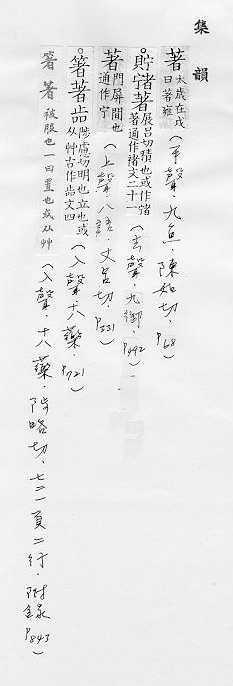 集韻
著 太歲在戊曰著雍 (平聲・九魚・陳如切・P68)
貯𣥺著 展呂切積也或作𣥺著通作褚文二十一
著 門屏間也通作宁 (上聲・八語・丈呂切・P331)
箸著 陟慮切明也立也或从艸古作 文四 (去聲・九御・P492)
箸著 被服也一曰置也或从艸 (入聲・十八藥・陟略切・七二一頁二行・附錄P843)
(入聲・十八藥・P721)